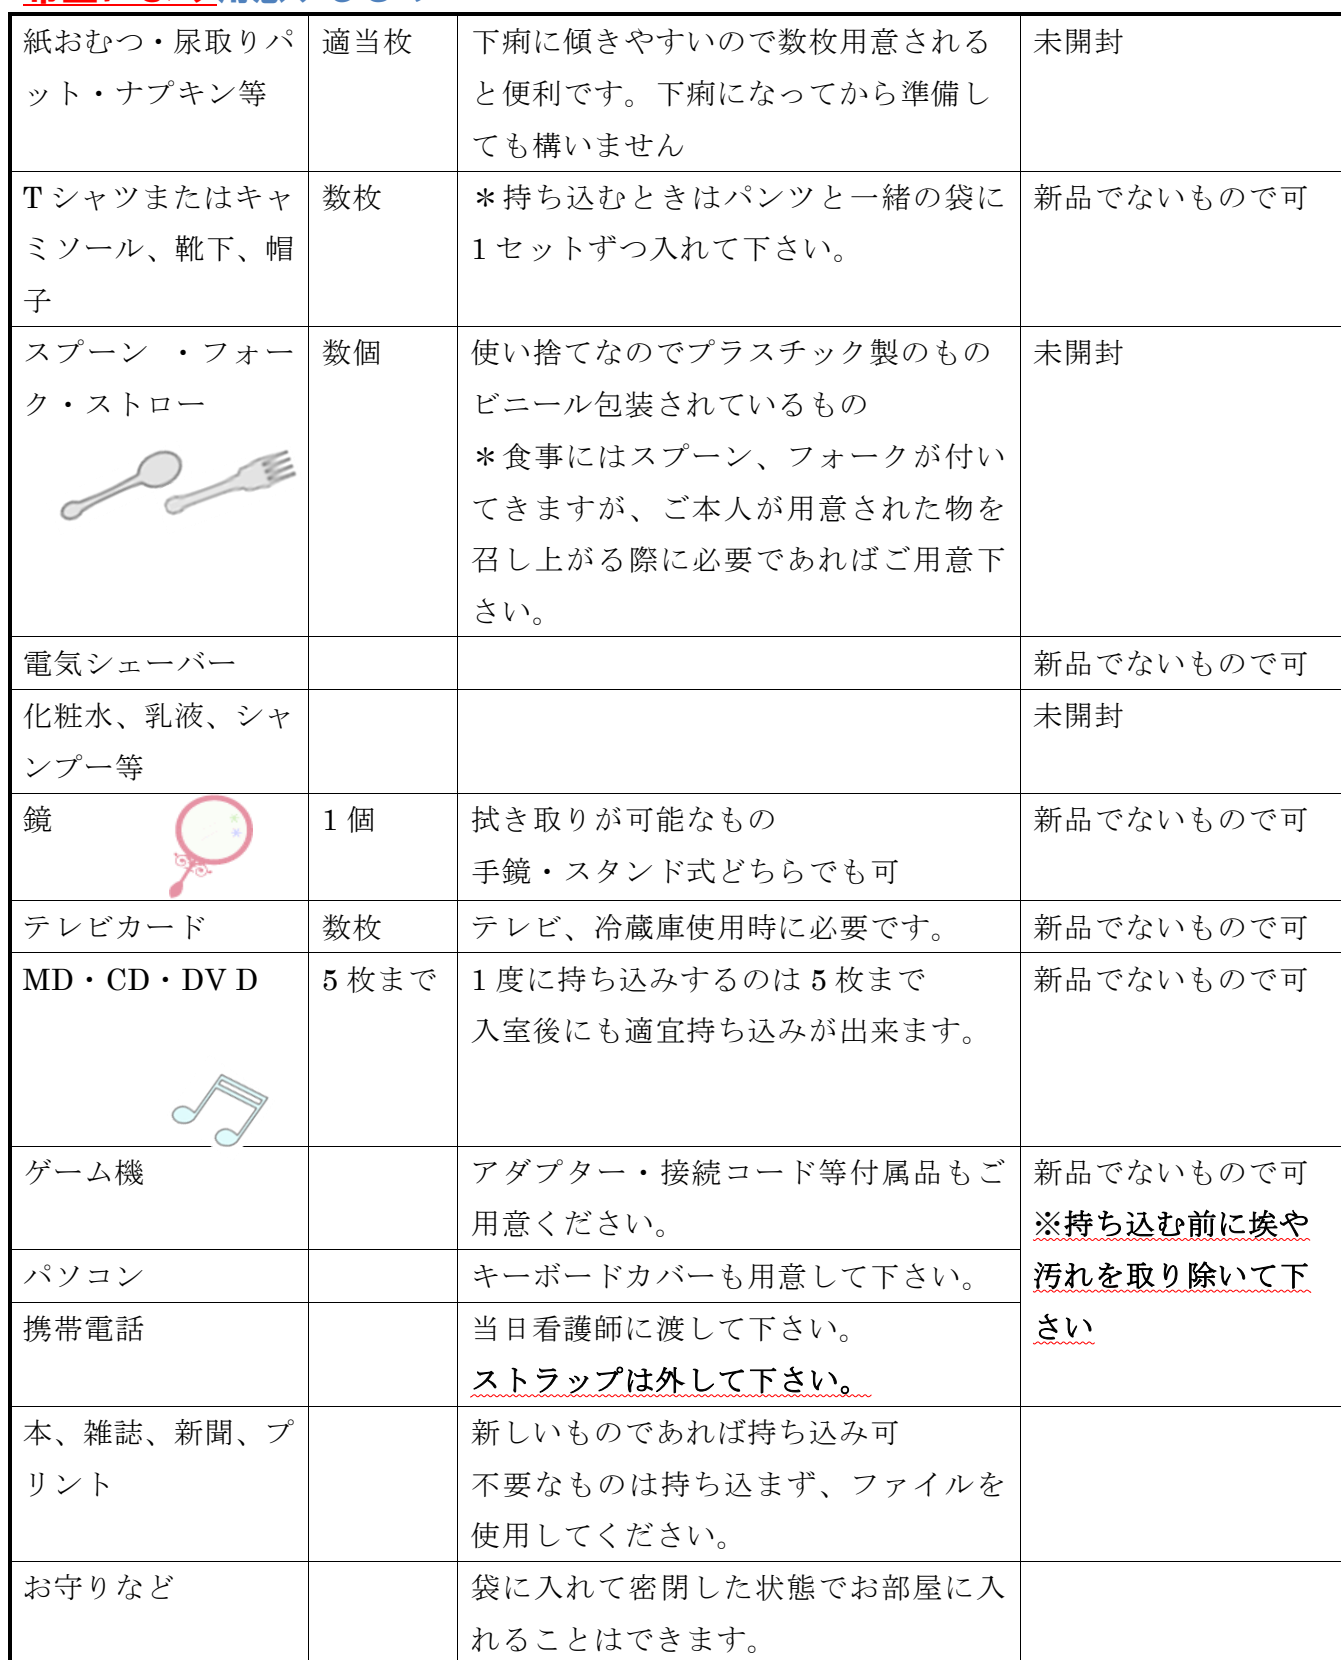 紙おむつ・尿取りパ
ット・ナプキン等
適当枚
下痢に傾きやすいので数枚用意される
と便利です。下痢になってから準備し
ても構いません
未開封
T シャツまたはキャ
ミソール、靴下、帽
子
数枚
＊持ち込むときはパンツと一緒の袋に
1 セットずつ入れて下さい。
新品でないもので可
スプーン ・フォー
ク・ストロー
数個
使い捨てなのでプラスチック製のもの
ビニール包装されているもの
＊食事にはスプーン、フォークが付い
てきますが、ご本人が用意された物を
召し上がる際に必要であればご用意下
さい。
未開封
電気シェーバー
新品でないもので可
化粧水、乳液、シャ
ンプー等
未開封
鏡
1 個
拭き取りが可能なもの
手鏡・スタンド式どちらでも可
新品でないもので可
テレビカード
数枚
テレビ、冷蔵庫使用時に必要です。
新品でないもので可
MD・CD・DV D
5 枚まで
1 度に持ち込みするのは 5 枚まで
入室後にも適宜持ち込みが出来ます。
新品でないもので可
ゲーム機
アダプター・接続コード等付属品もご
用意ください。
新品でないもので可
※持ち込む前に埃や
汚れを取り除いて下
さい
パソコン
キーボードカバーも用意して下さい。
携帯電話
当日看護師に渡して下さい。
ストラップは外して下さい。
本、雑誌、新聞、プ
リント
新しいものであれば持ち込み可
不要なものは持ち込まず、ファイルを
使用してください。
お守りなど
袋に入れて密閉した状態でお部屋に入
れることはできます。